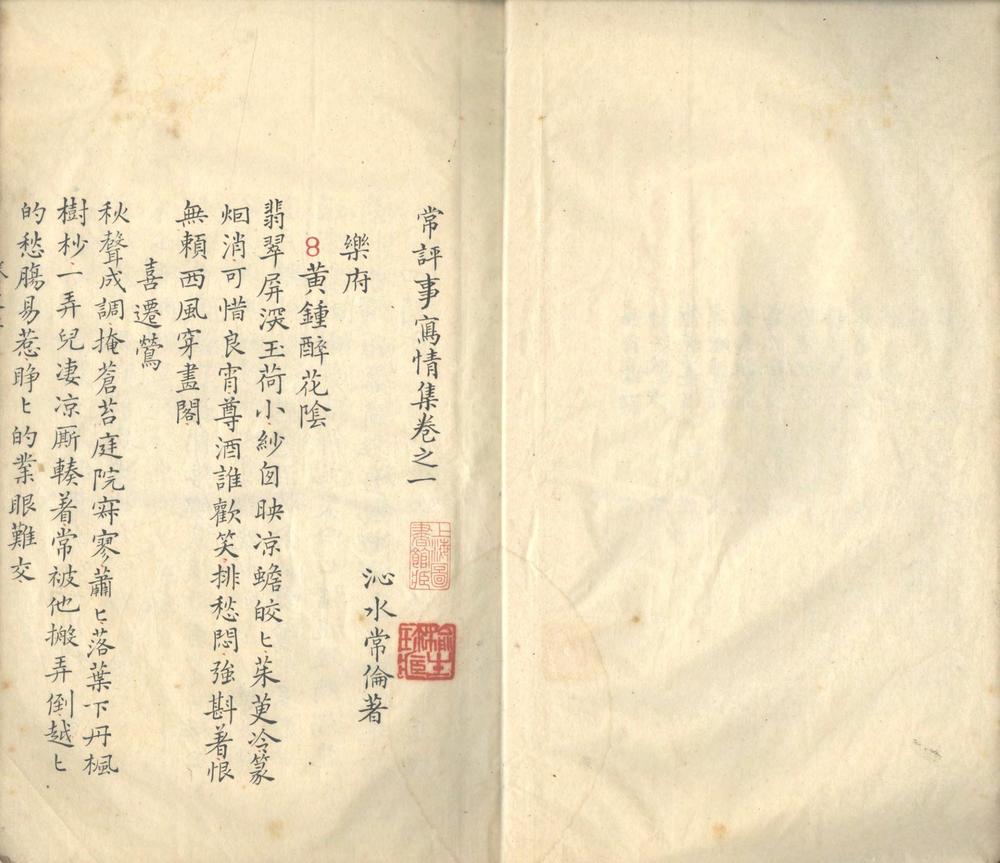 常評事寫情集卷之一
沁水常倫著
樂府
8黄鍾醉花陰
翡翠屏深玉荷小紗囱映凉蟾皎匕茱萸冷篆
烟消可惜良宵尊酒誰歡笑排愁悶強斟着恨
無頼西風穿畫閣
喜遷鶯
秋聲成調掩蒼苔庭院寂寥蕭匕落葉下丹楓
樹杪一弄兒凄凉厮輳着常被他搬弄倒越匕
的愁腸易惹睁匕的業眼難交
上海圖書館藏